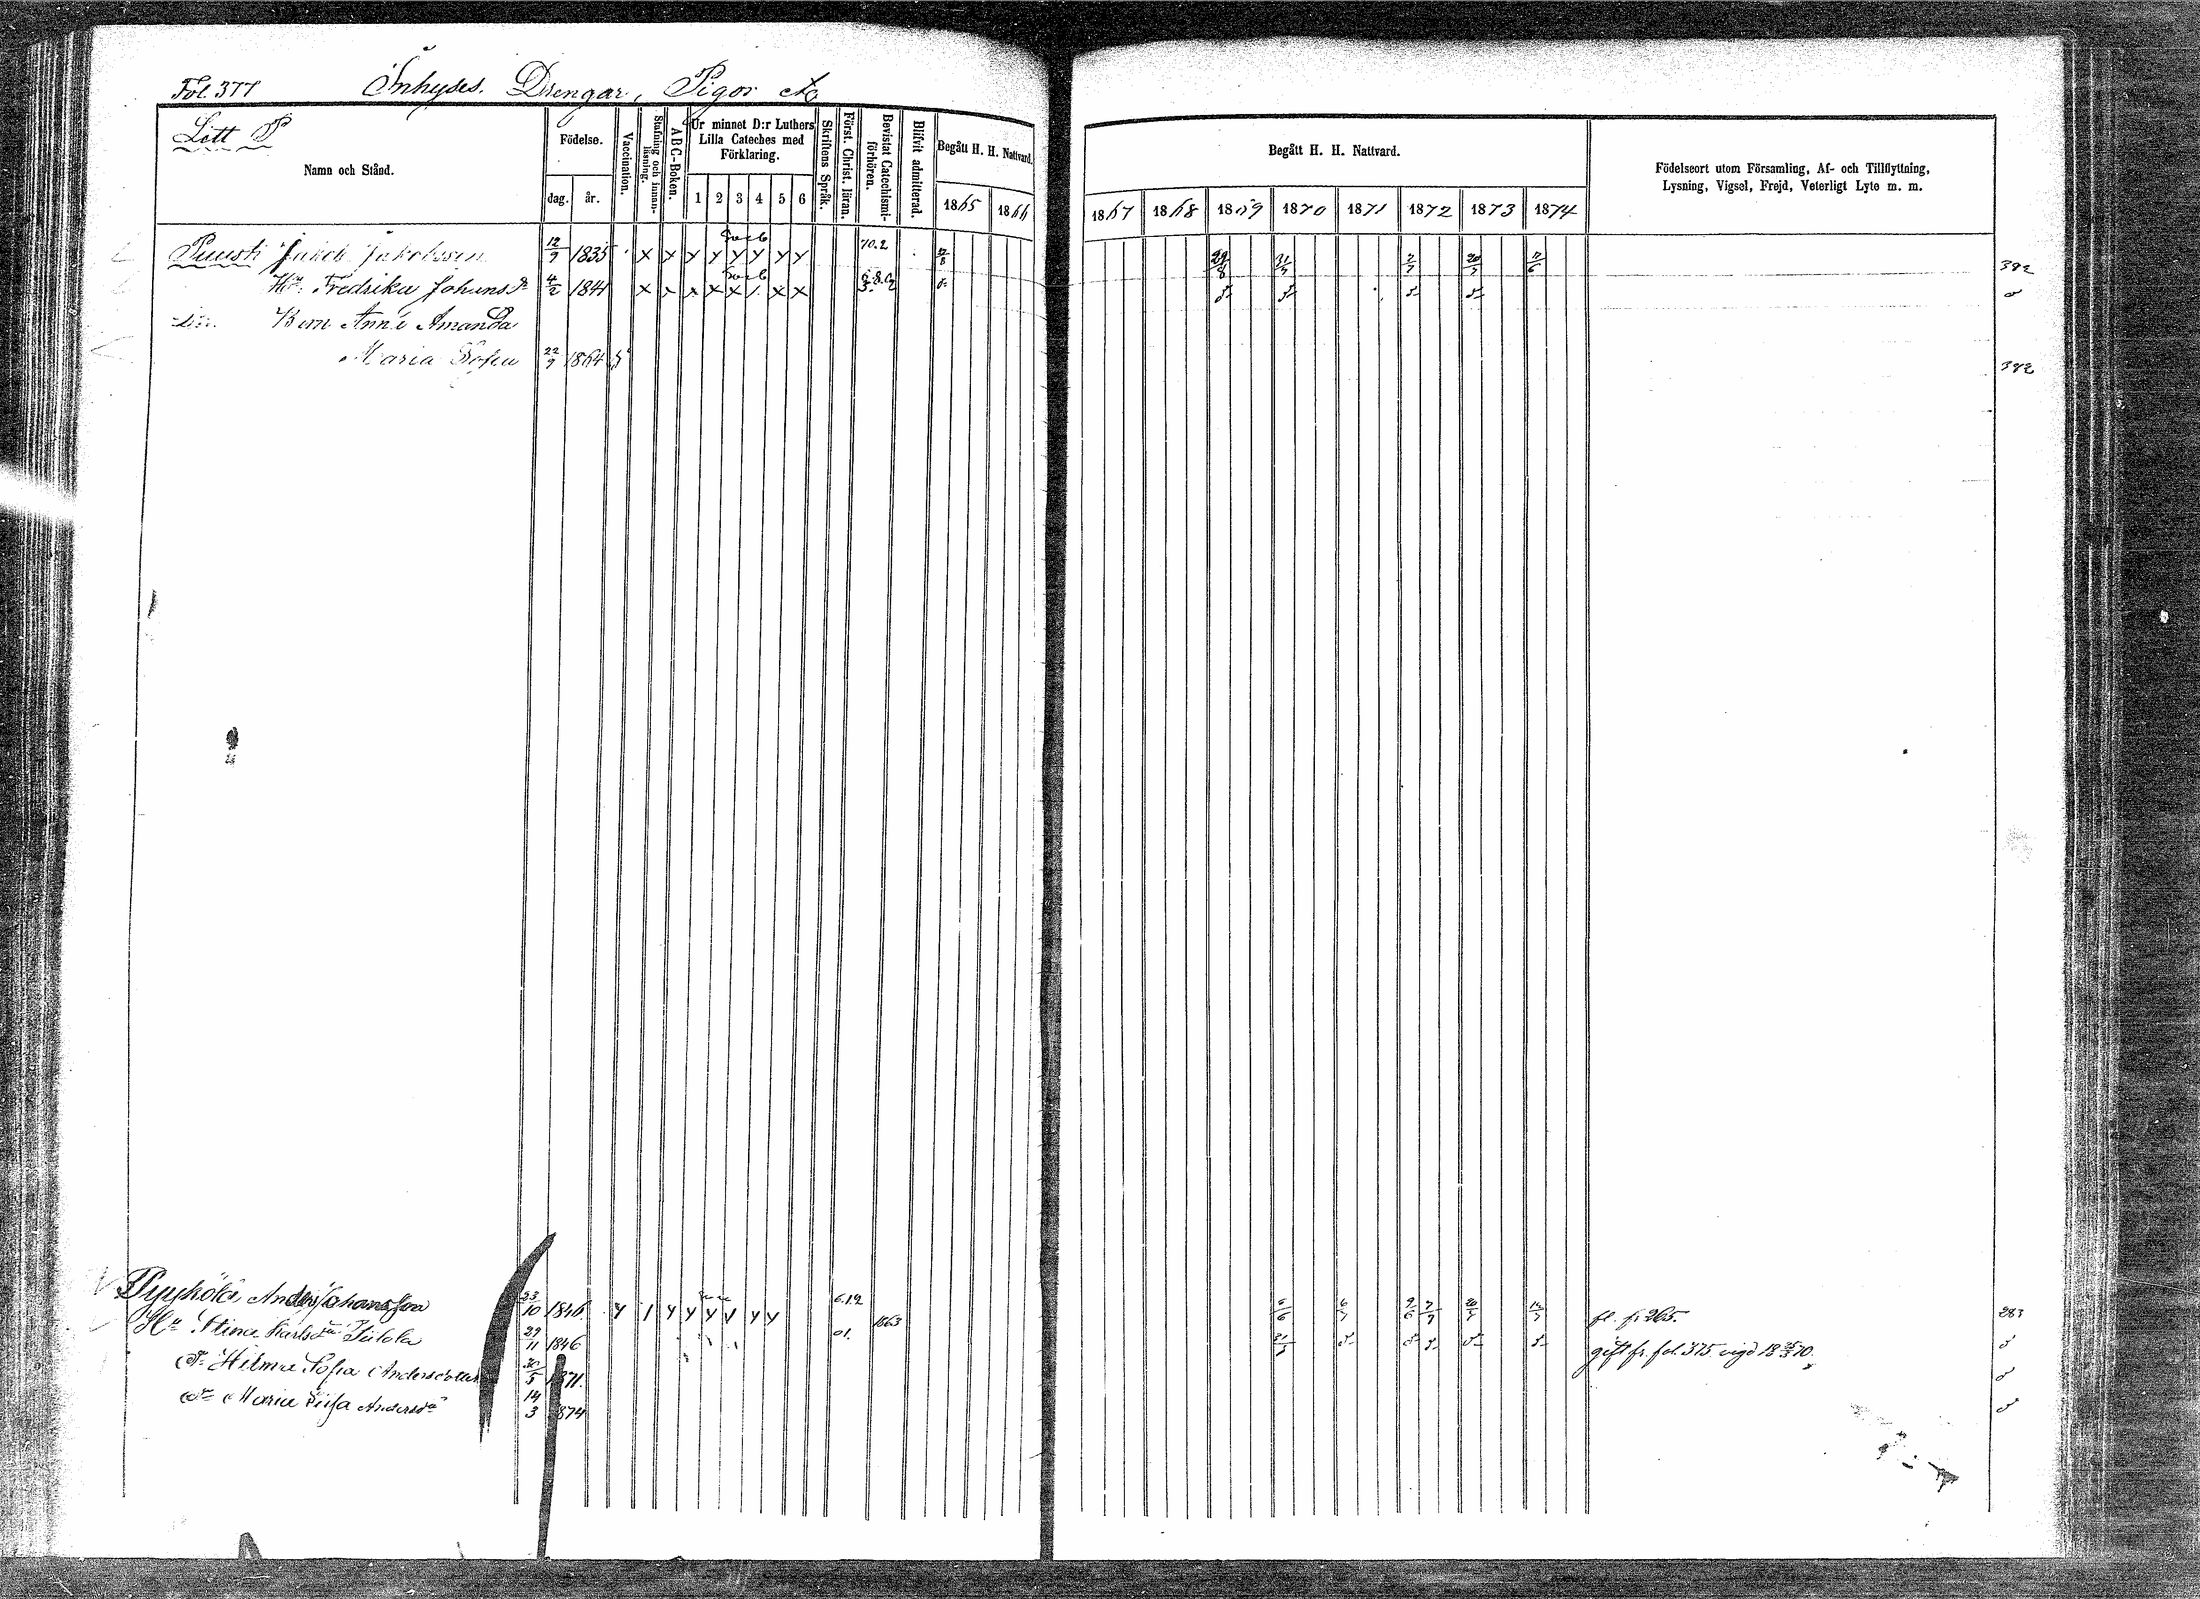 Fol. 377 Inhyses. Drengar, Pigor etc
Litt P
Namn och Stånd.
Födelse.
dag. år.
Vaccination.
Stafning och innan-läsning.
ABC-Boken.
Ur minnet D:r Luthers
Lilla Cateches med
Förklaring.
1 2 3 4 5 6
Skriftens Språk.
Först. Christ. läran.
Bevistat Catechismi-förhören.
Blifvit admitterad.
Begått H. H. Nattvard.
1865 1866
Begått H. H. Nattvard.
1867 1868 1869 1870 1871 1872 1873 1874
Födelseort utom Församling, Af- och Tillflyttning,
Lysning, Vigsel, Frejd, Veterligt Lyte m. m.
Puusti Jakob Jakobsson 12/9 1835 x x y y y y y y 70.2 29/8 2/7 20/7 382
Hu. Fredrika Johans dr 4/2 1841 x x x x x x x
Barn Anna Amanda
Maria Sofia 22/9 1864 382
Pyyköle Anders Johansson 23/10 1846 y 1 y y y y y y 6.12 1863 6/7 9/6 7/7 20/7 fl. fr 265. 283
Hu Stina Karlsdr Iulola 29/11 1846 01. gift fr. fol. 375 vigd 18 25/3 70.
dr Hilma Sofia Andersdotter 30/5 1871.
dr Maria Lisa Andersdr 14/3 1874